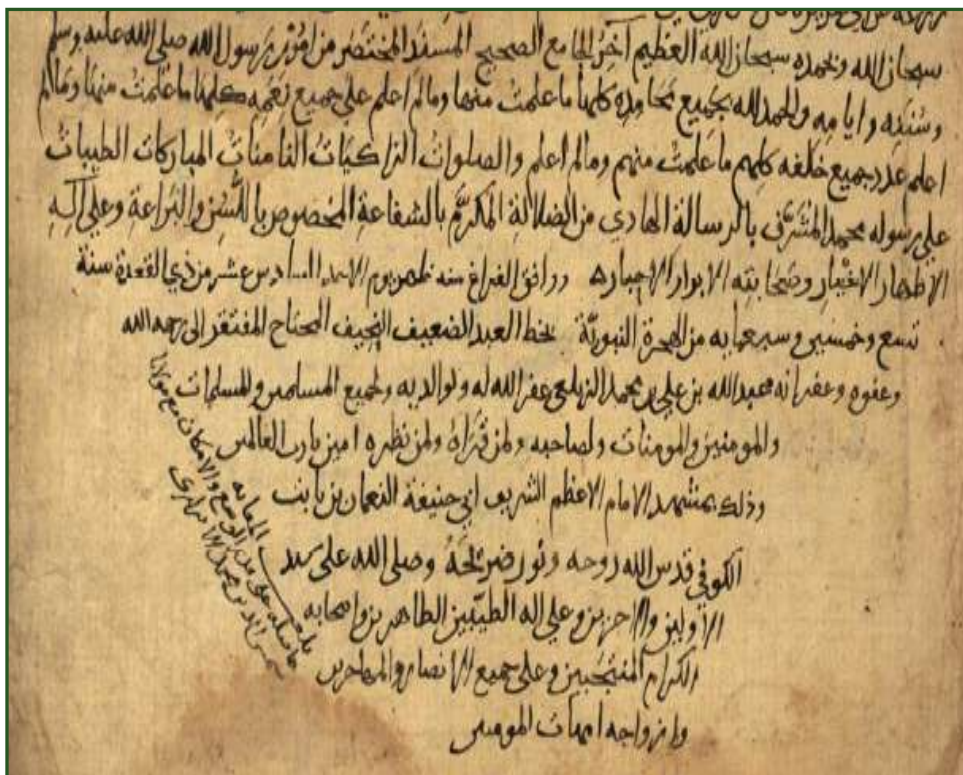 سبحان الله وبحمده سبحان الله العظيم آخر الجامع الصحيح المسند المختصر من امور رسول الله صلى الله عليه وسلم
وسننه وايامه والحمد لله بجميع محامده كلها ما علمت منها وما لم اعلم على جميع نعمه كلها ما علمت منها وما لم
اعلم عدد جميع خلقه كلهم ما علمت منهم وما لم اعلم والصلوات الزاكيات النامات المباركات الطيبات
على رسوله محمد المشرف بالرسالة الهادي من الضلالة المكرم بالشفاعة المخصوص باللسن والبراعة وعلى آله
الاطهار الاخيار وصحابته الابرار ووافق الفراغ منه ظهر يوم الاحد السادس عشر من ذي القعدة سنة
تسع وخمسين وسبعمايه من الهجرة النبوية بخط العبد الضعيف النحيف المحتاح المفتقر الى رحمه الله
وعفوه وغفرانه عبد الله بن علي بن محمد الزيلعي غفر الله له ولوالديه ولجميع المسلمين والمسلمات
والمومنين والمومنات ولصاحبه ولمن قراه ولمن نظره امين يارب العالمين
وذلك بمشهد الامام الاعظم الشريف ابي حنيفة النعمان بن ثابت
الكوفي قدس الله روحه ونور ضريحه وصلى الله على سيد
الاولين والاخرين وعلى اله الطيبين الطاهرين واصحابه
الكرام المنتجبين وعلى جميع الانصار والمهاجرين
وازواجه امهات المومنين
بلغ